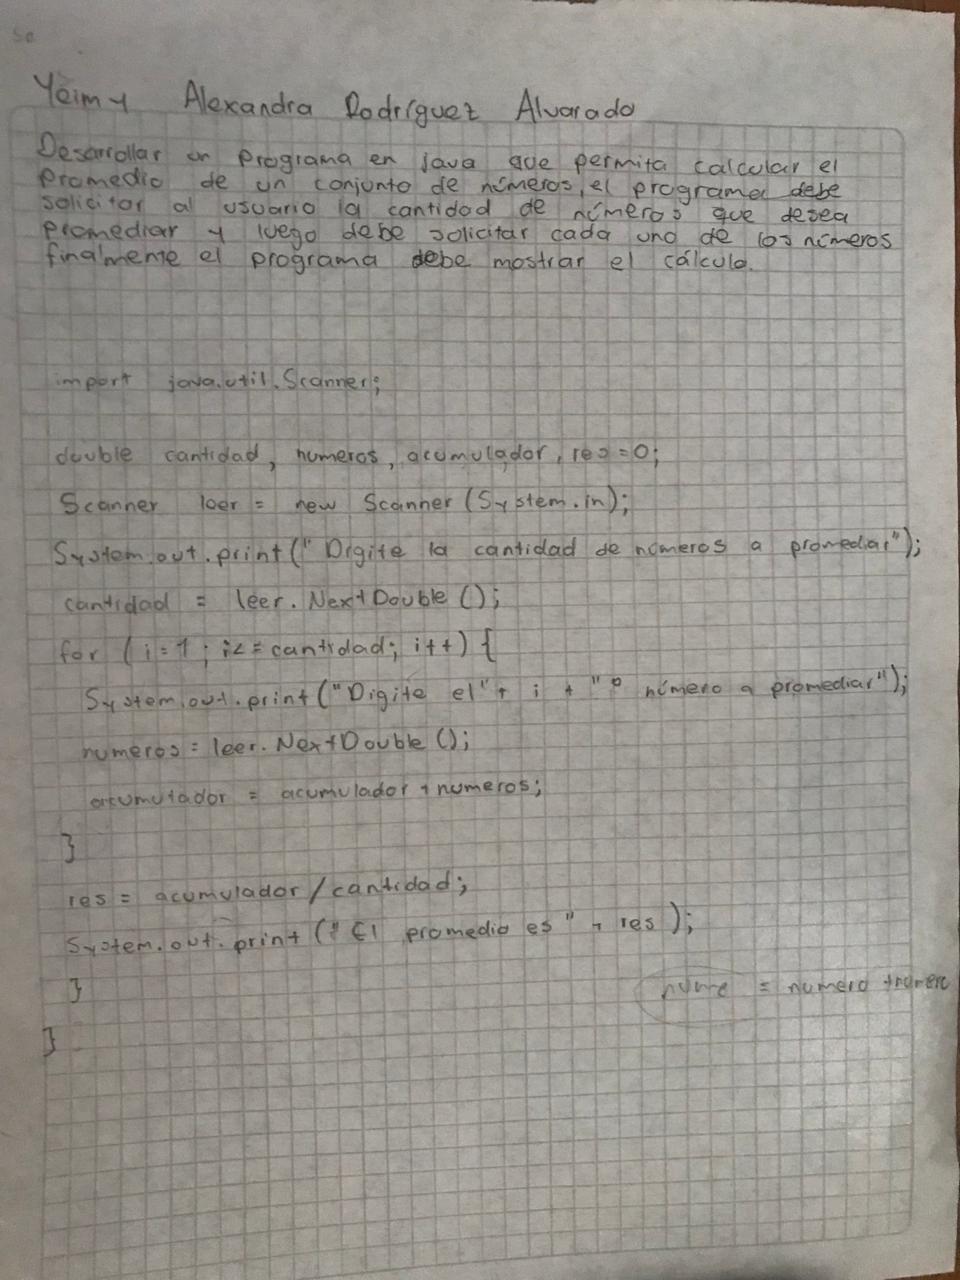 50
Yeimy Alexandra Rodríguez Alvarado
Desarrollar un programa en java que permita calcular el
promedio de un conjunto de números, el programa debe
solicitar al usuario la cantidad de números que desea
promediar y luego debe solicitar cada uno de los números
finalmente el programa debe mostrar el cálculo.
import java.util.Scanner;
double cantidad, numeros, acumulador, res=0;
Scanner leer = new Scanner (System.in);
System.out.print(" Digite la cantidad de números a promediar");
cantidad = leer. NextDouble ();
for (i=1; i<=cantidad; i++) {
System.out.print("Digite el"+ i + "° número a promediar");
numeros = leer. NextDouble ();
acumulador = acumulador + numeros;
}
res = acumulador/cantidad;
System.out.print (" El promedio es " + res );
}
nume = numero +numero
}